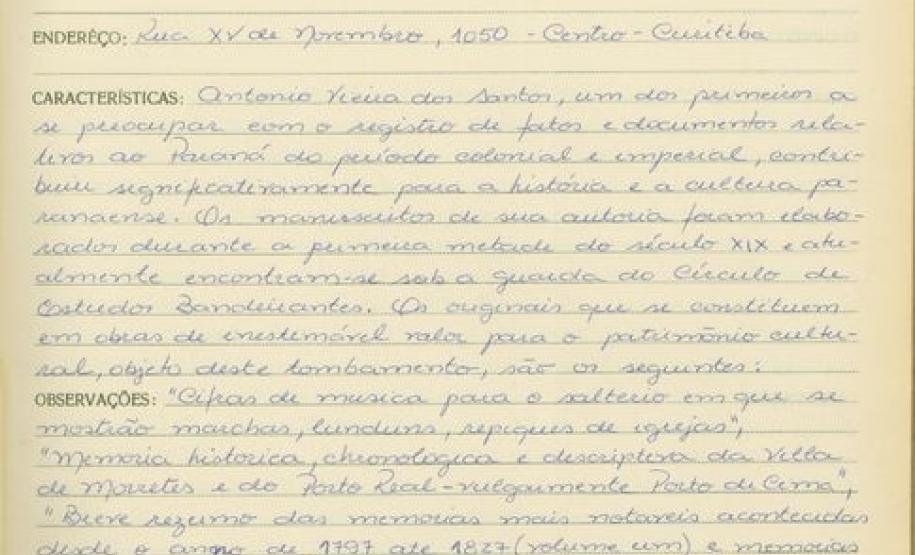 ENDERÊÇO: Rua XV de Novembro, 1050 - Centro - Curitiba
CARACTERÍSTICAS: Antonio Vieira dos Santos, um dos primeiros a
se preocupar com o registro de fatos e documentos rela-
tivos ao Paraná do período colonial e imperial, contri-
buiu significativamente para a história e a cultura pa-
ranaense. Os manuscritos de sua autoria foram elabo-
rados durante a primeira metade do século XIX e atu-
almente encontram-se sob a guarda do Círculo de
Estudos Bandeirantes. Os originais que se constituem
em obras de inestimável valor para o patrimônio cultu-
ral, objeto deste tombamento, são os seguintes:
OBSERVAÇÕES: "Cifras de musica para o salterio em que se
mostrão marchas, lunduns, repiques de igrejas",
"Memoria historica, chronologica e descriptiva da Villa
de Morretes e do Porto Real - vulgarmente Porto de Cima",
"Breve rezumo das memorias mais notaveis acontecidas
desde o anno de 1797 até 1827 (volume um) e memorias